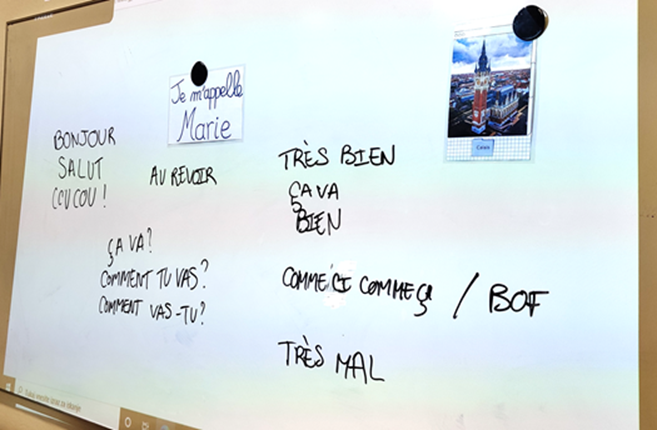 Je m'appelle
Marie
Calais
BONJOUR
SALUT
COUCOU !
AU REVOIR
TRÈS BIEN
ÇA VA
BIEN
ÇA VA?
COMMENT TU VAS?
COMMENT VAS-TU?
COMME ÇI COMME ÇA / BOF
TRÈS MAL